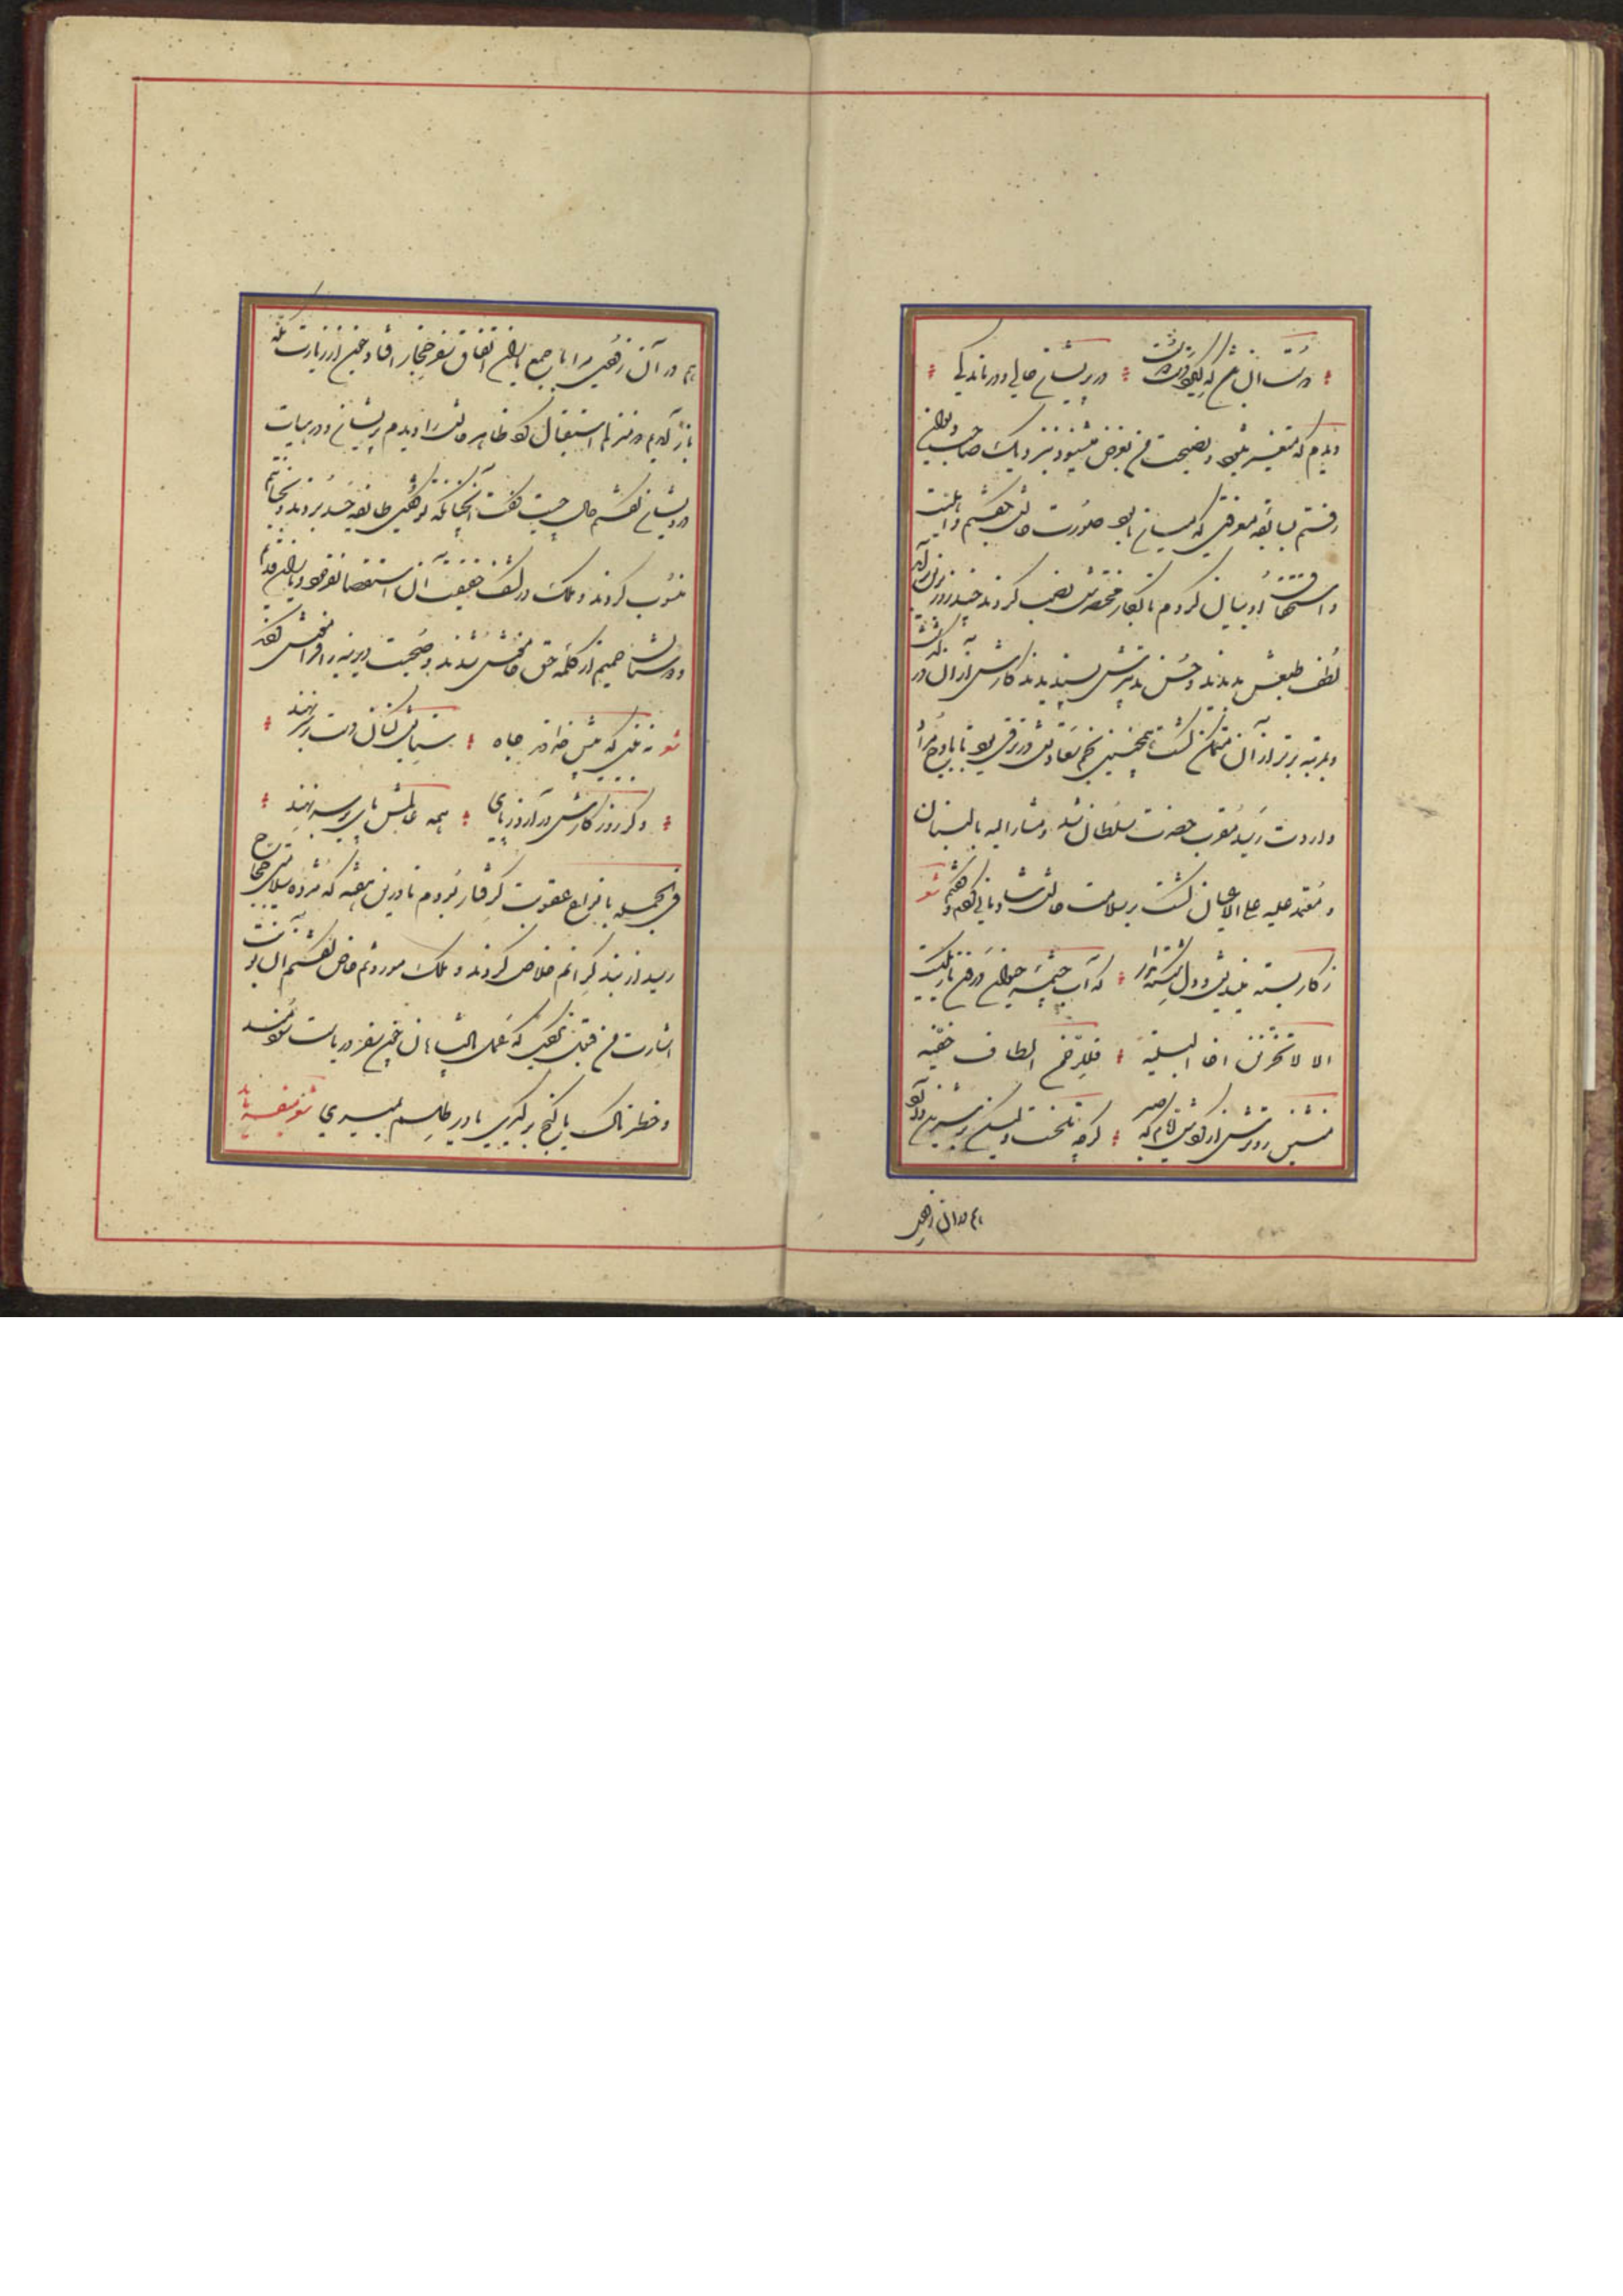 دوست آن باشد که گیرد دست دوست در پریشان حالی و درماندگی
دیدم که متغیر میشود و نصیحت من بغرض میشنود نزدیک صاحب دیوان
رفتم بسابقه معرفتی که میان ما بود صورت حالش بگفتم و اهلیت
و استحقاق او بیان کردم تا بکار مختصرش نصب کردند چند روز برین برآمد
لطف طبعش بدیدند و حسن تدبیرش پسندیدند کارش از آن درگذشت
و بمرتبه برتر از آن متمکن گشت همچنین نجم سعادتش در ترقی بود تا باوج مراد
و ارادت رسید مقرب حضرت سلطان شد و مشار الیه بالبنان
و معتمد علیه علی الاعیان گشت بر سلامت حالش شادمانی کردم و گفتم شعر
ز کار بسته میندیش و دل شکسته مدار که آب چشمه حیوان درون تاریکیست
الا لا تحزنن اخا البلیة فللرحمن الطاف خفیه
منشین روترش از گردش ایام که صبر گرچه تلخست ولیکن بر شیرین دارد
هم در آن نزدیکی
هم در آن نزدیکی مرا با جمع یاران اتفاق سفر حجاز افتاد چون از زیارت مکه
باز آمدم دو منزلم استقبال کرد ظاهر حالش را دیدم پریشان و در هیات
درویشان گفتم حال چیست گفت آنچنانکه تو گفتی طایفه حسد بردند و بخیانتم
منسوب کردند و ملک در کشف حقیقت آن استقصا نفرمود و یاران قدیم
و دوستان حمیم از کلمه حق خاموش شدند و صحبت دیرینه را فراموش کردند
شعر نه بینی که پیش خداوند جاه ستایش کنان دست بر بر نهند
وگر روزگارش درآرد ز پای همه عالمش پای بر سر نهند
فی الجمله بانواع عقوبت گرفتار بودم تا درین هفته که مژده سلامتی حجاج
رسید از بند گرانم خلاص کردند و ملک موروثم خاص گفتم آن نوبت
اشارت من قبول نکردی که عمل پادشاهان چون سفر دریاست سودمند
و خطرناک یا گنج برگیری یا در طلسم بمیری شعر